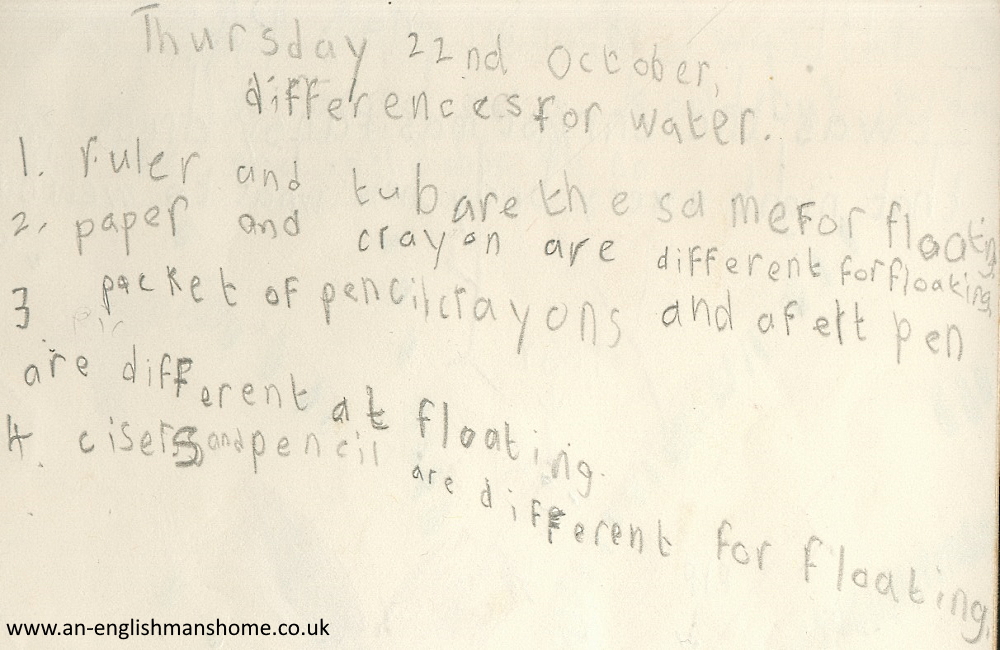 Thursday 22nd October,
differences for water.
1. ruler and tub are the same For floating
2. paper and crayon are different for floating
3 packet of pencil crayons and a felt pen
are different at floating.
4. cisers and pencil are different for floating
www.an-englishmanshome.co.uk